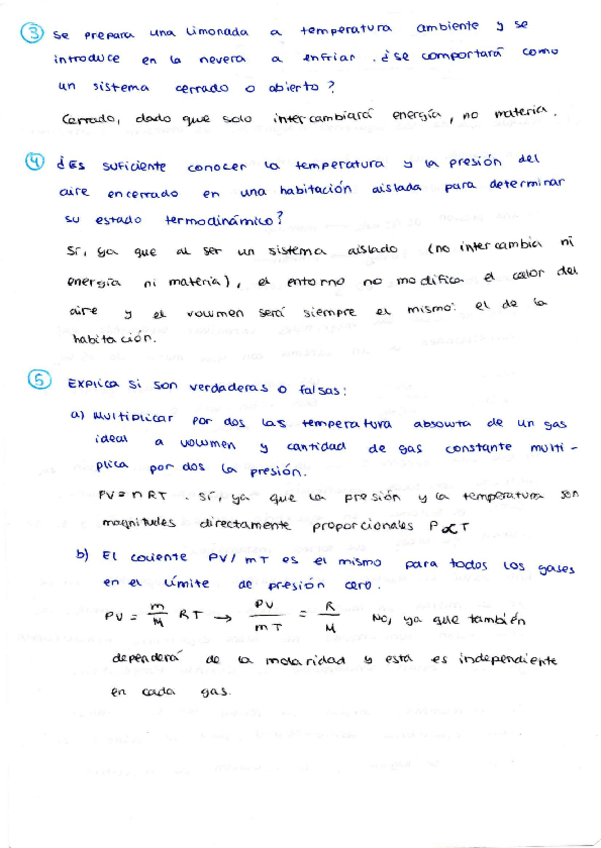 3 Se prepara una limonada a temperatura ambiente y se
introduce en la nevera a enfriar. ¿Se comportará como
un sistema cerrado o abierto?
Cerrado, dado que solo intercambiará energía, no materia.
4 ¿Es suficiente conocer la temperatura y la presión del
aire encerrado en una habitación aislada para determinar
su estado termodinámico?
Sí, ya que al ser un sistema aislado (no intercambia ni
energía ni materia), el entorno no modifica el calor del
aire y el volumen será siempre el mismo: el de la
habitación.
5 Explica si son verdaderas o falsas:
a) Multiplicar por dos las temperatura absouta de un gas
ideal a volumen y cantidad de gas constante multi-
plica por dos la presión.
PV = nRT. Sí, ya que la presión y la temperatura son
magnitudes directamente proporcionales P ∝ T
b) El cociente PV/mT es el mismo para todos los gases
en el límite de presión cero.
PV = m/M RT → PV/mT = R/M No, ya que también
dependerá de la molaridad y esta es independiente
en cada gas.